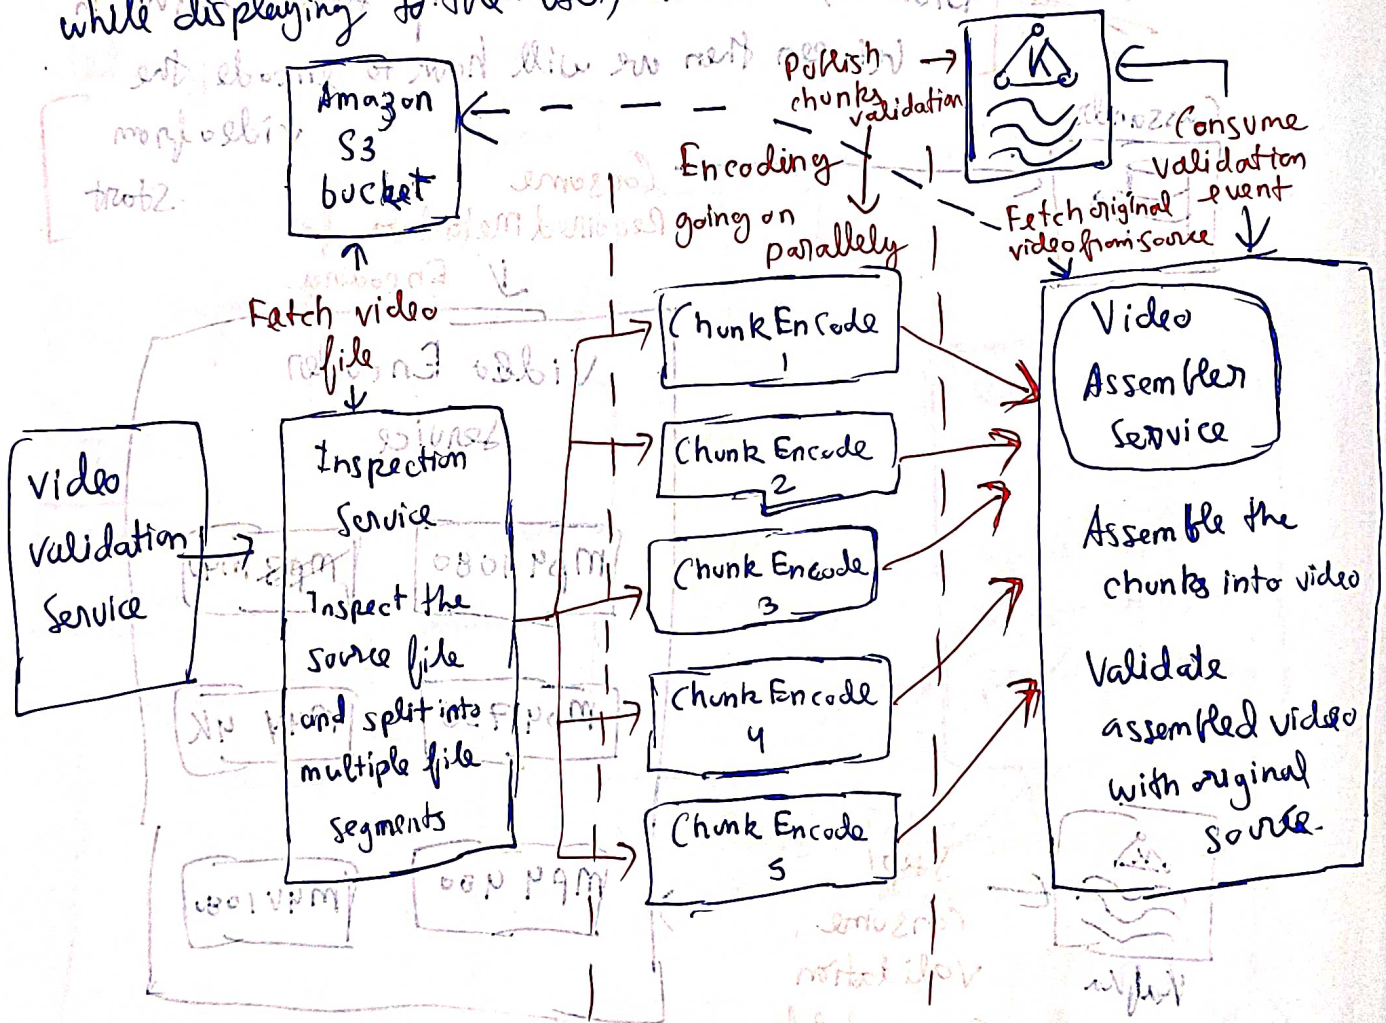 while displaying to the user,
Amazon
S3
bucket
Publish
chunks
validation
K
Consume
validation
event
Encoding
going on
parallely
Fetch original
video from source
Fetch video
file
Video
Validation
Service
Inspection
Service
Inspect the
source file
and split into
multiple file
segments
Chunk Encode
1
Chunk Encode
2
Chunk Encode
3
Chunk Encode
4
Chunk Encode
5
Video
Assembler
Service
Assemble the
chunks into video
Validate
assembled video
with original
source.